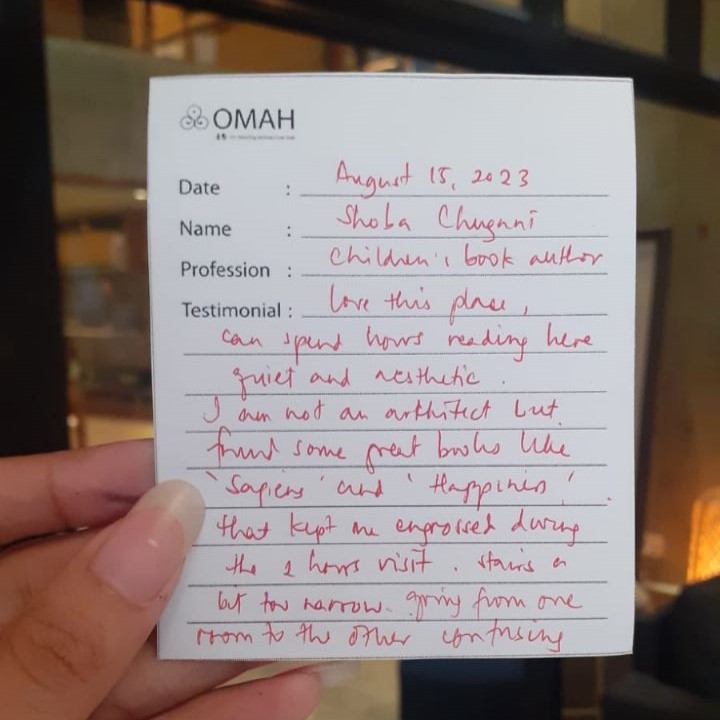 OMAH
Date : August 15, 2023
Name : Shoba Chugani
Profession : Children's book author
Testimonial : Love this place,
can spend hours reading here
quiet and aesthetic.
I am not an arthitect but
found some great books like
'Sapiens' and 'Happiness'
that kept me engrossed during
the 2 hours visit. stairs a
bit too narrow. going from one
room to the other confusing